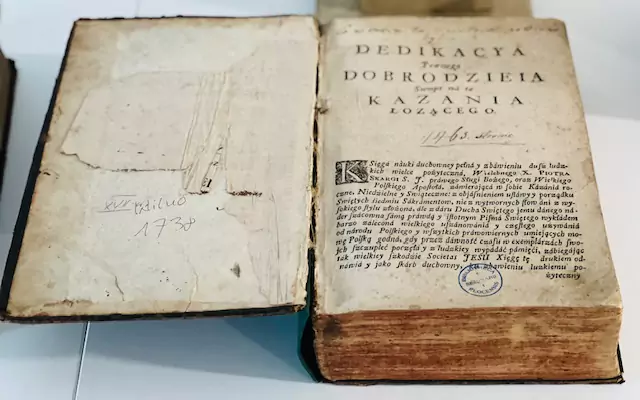 XVII Wilno
1738
DEDIKACYA
DOBRODZIEIA
Sumpt ná te
KAZANIA
ŁOZĄCEGO.
KSięga náuki duchowney pełna y zbáwieniu dusz ludz-
kich wielce pożyteczna, Wielebnego X. PIOTRA
SKARGI S. J. práwego Sługi Bożego, oraz Wielkiego
Polskiego Apostołá, zámieráiąca w sobie Kázánia ro-
czne, Niedzielne y Swiąteczne: z obiásnieniem ustáwy y porządku
Swiętych siedmiu Sákrámentow, nie z wytwornych słow áni z wy-
sokiego stylu ułożona, ále z dáru Duchá Swiętego jemu dánego ná-
der sámą prawdą y istotnym Pismá Swiętego wykłádem
bárzo zálecona wielkiego uszánowánia y częstego używánia
od národu Polskiego y wszytkich práwowiernych umiejących mo-
wę Polską godna, gdy przez dáwność czásu w exemplarzách swo-
ich szczupleć poczęłá y z ludzkiey wypádáć pámięci, zábiegájąc
ták wielkiey szkodzie Societas JESU Xięgę tę drukiem od-
nawia y jáko skárb duchowny, zbáwieniu ludzkiemu po-
żyteczny